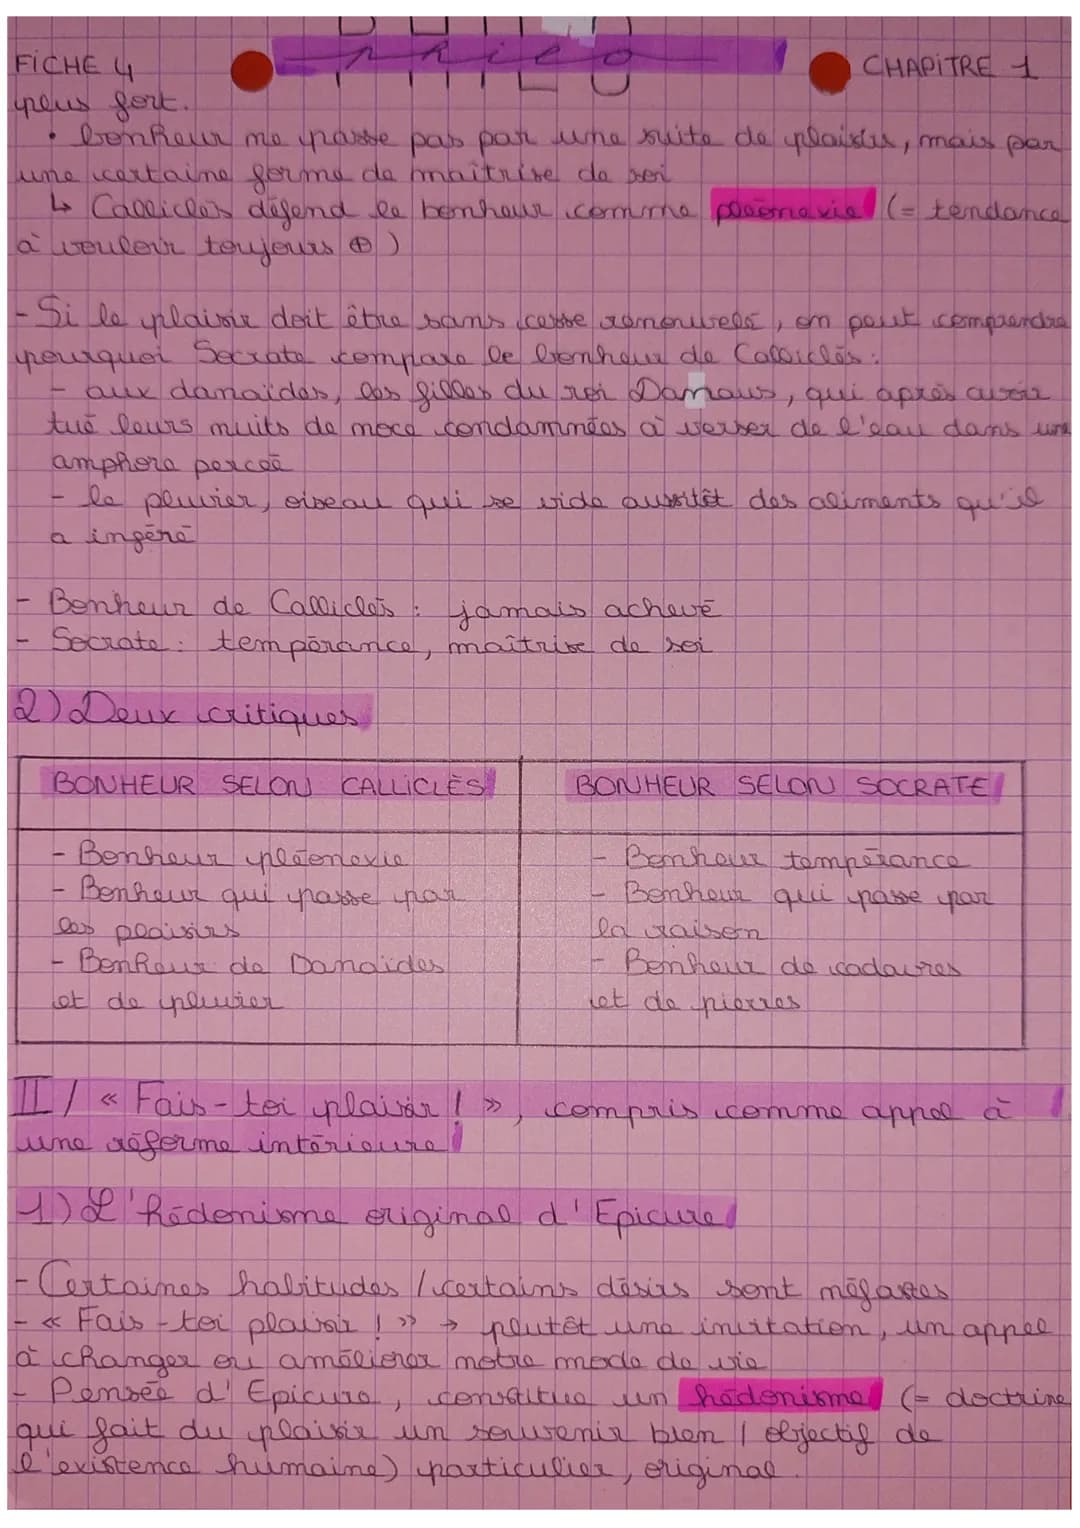 PHILO
philo
FICHE 4
CHAPITRE 1
plus fort.
• bonheur ne passe pas par une suite de plaisirs, mais par
une certaine forme de maîtrise de soi
↳ Calliclès défend le bonheur comme pléonexie (= tendance
à vouloir toujours ⊕)
- Si le plaisir doit être sans cesse renouvelé, on peut comprendre
pourquoi Socrate compare le bonheur de Calliclès :
- aux danaïdes, les filles du roi Danaus, qui après avoir
tué leurs muits de noce condamnées à verser de l'eau dans une
amphore percée
- le pluvier, oiseau qui se vide aussitôt des aliments qu'il
a ingéré
- Bonheur de Calliclès : jamais achevé
- Socrate : tempérance, maîtrise de soi
2) Deux critiques
BONHEUR SELON CALLICLÈS
BONHEUR SELON SOCRATE
- Bonheur pléonexie
- Bonheur qui passe par
les plaisirs
- Bonheur de Danaïdes
et de pluvier
- Bonheur tempérance
- Bonheur qui passe par
la raison
- Bonheur de cadavres
et de pierres
II / « Fais-toi plaisir ! », compris comme appel à
une réforme intérieure
1) L'hédonisme original d'Epicure
- Certaines habitudes / certains désirs sont néfastes
- « Fais-toi plaisir ! » → plutôt une invitation, un appel
à changer ou améliorer notre mode de vie
- Pensée d'Epicure, constitue un hédonisme (= doctrine
qui fait du plaisir un souvenir bien / objectif de
l'existence humaine) particulier, original.